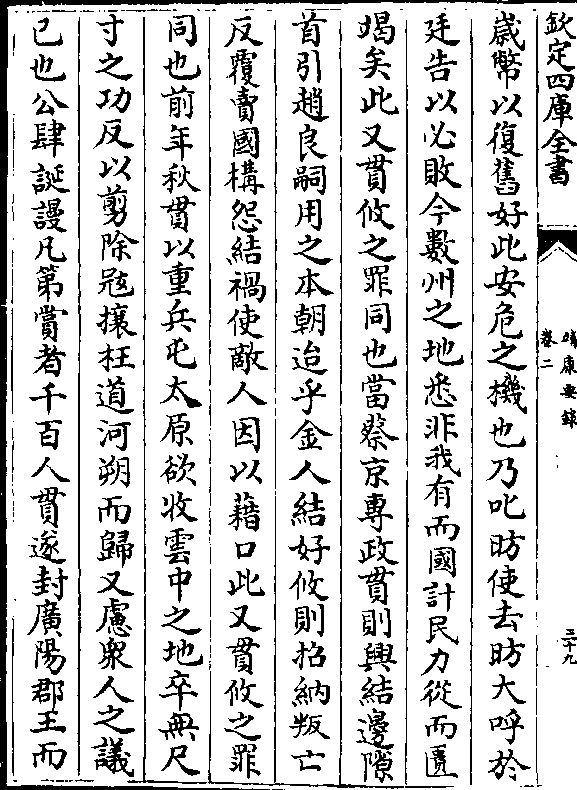 欽定四庫全書
靖康要錄
卷二
三十九
歲幣以復舊好此安危之機也乃叱昉使去昉大呼於
廷告以必敗今數州之地悉非我有而國計民力從而匱
竭矣此又貫攸之罪同也當蔡京專政貫則興結邊隙
首引趙良嗣用之本朝迨乎金人結好攸則招納叛亡
反覆賣國構怨結禍使敵人因以藉口此又貫攸之罪
同也前年秋貫以重兵屯太原欲收雲中之地卒無尺
寸之功反以剪除冦攘枉道河朔而歸又慮衆人之議
已也公肆誕謾凡第賞者千百人貫遂封廣陽郡王而